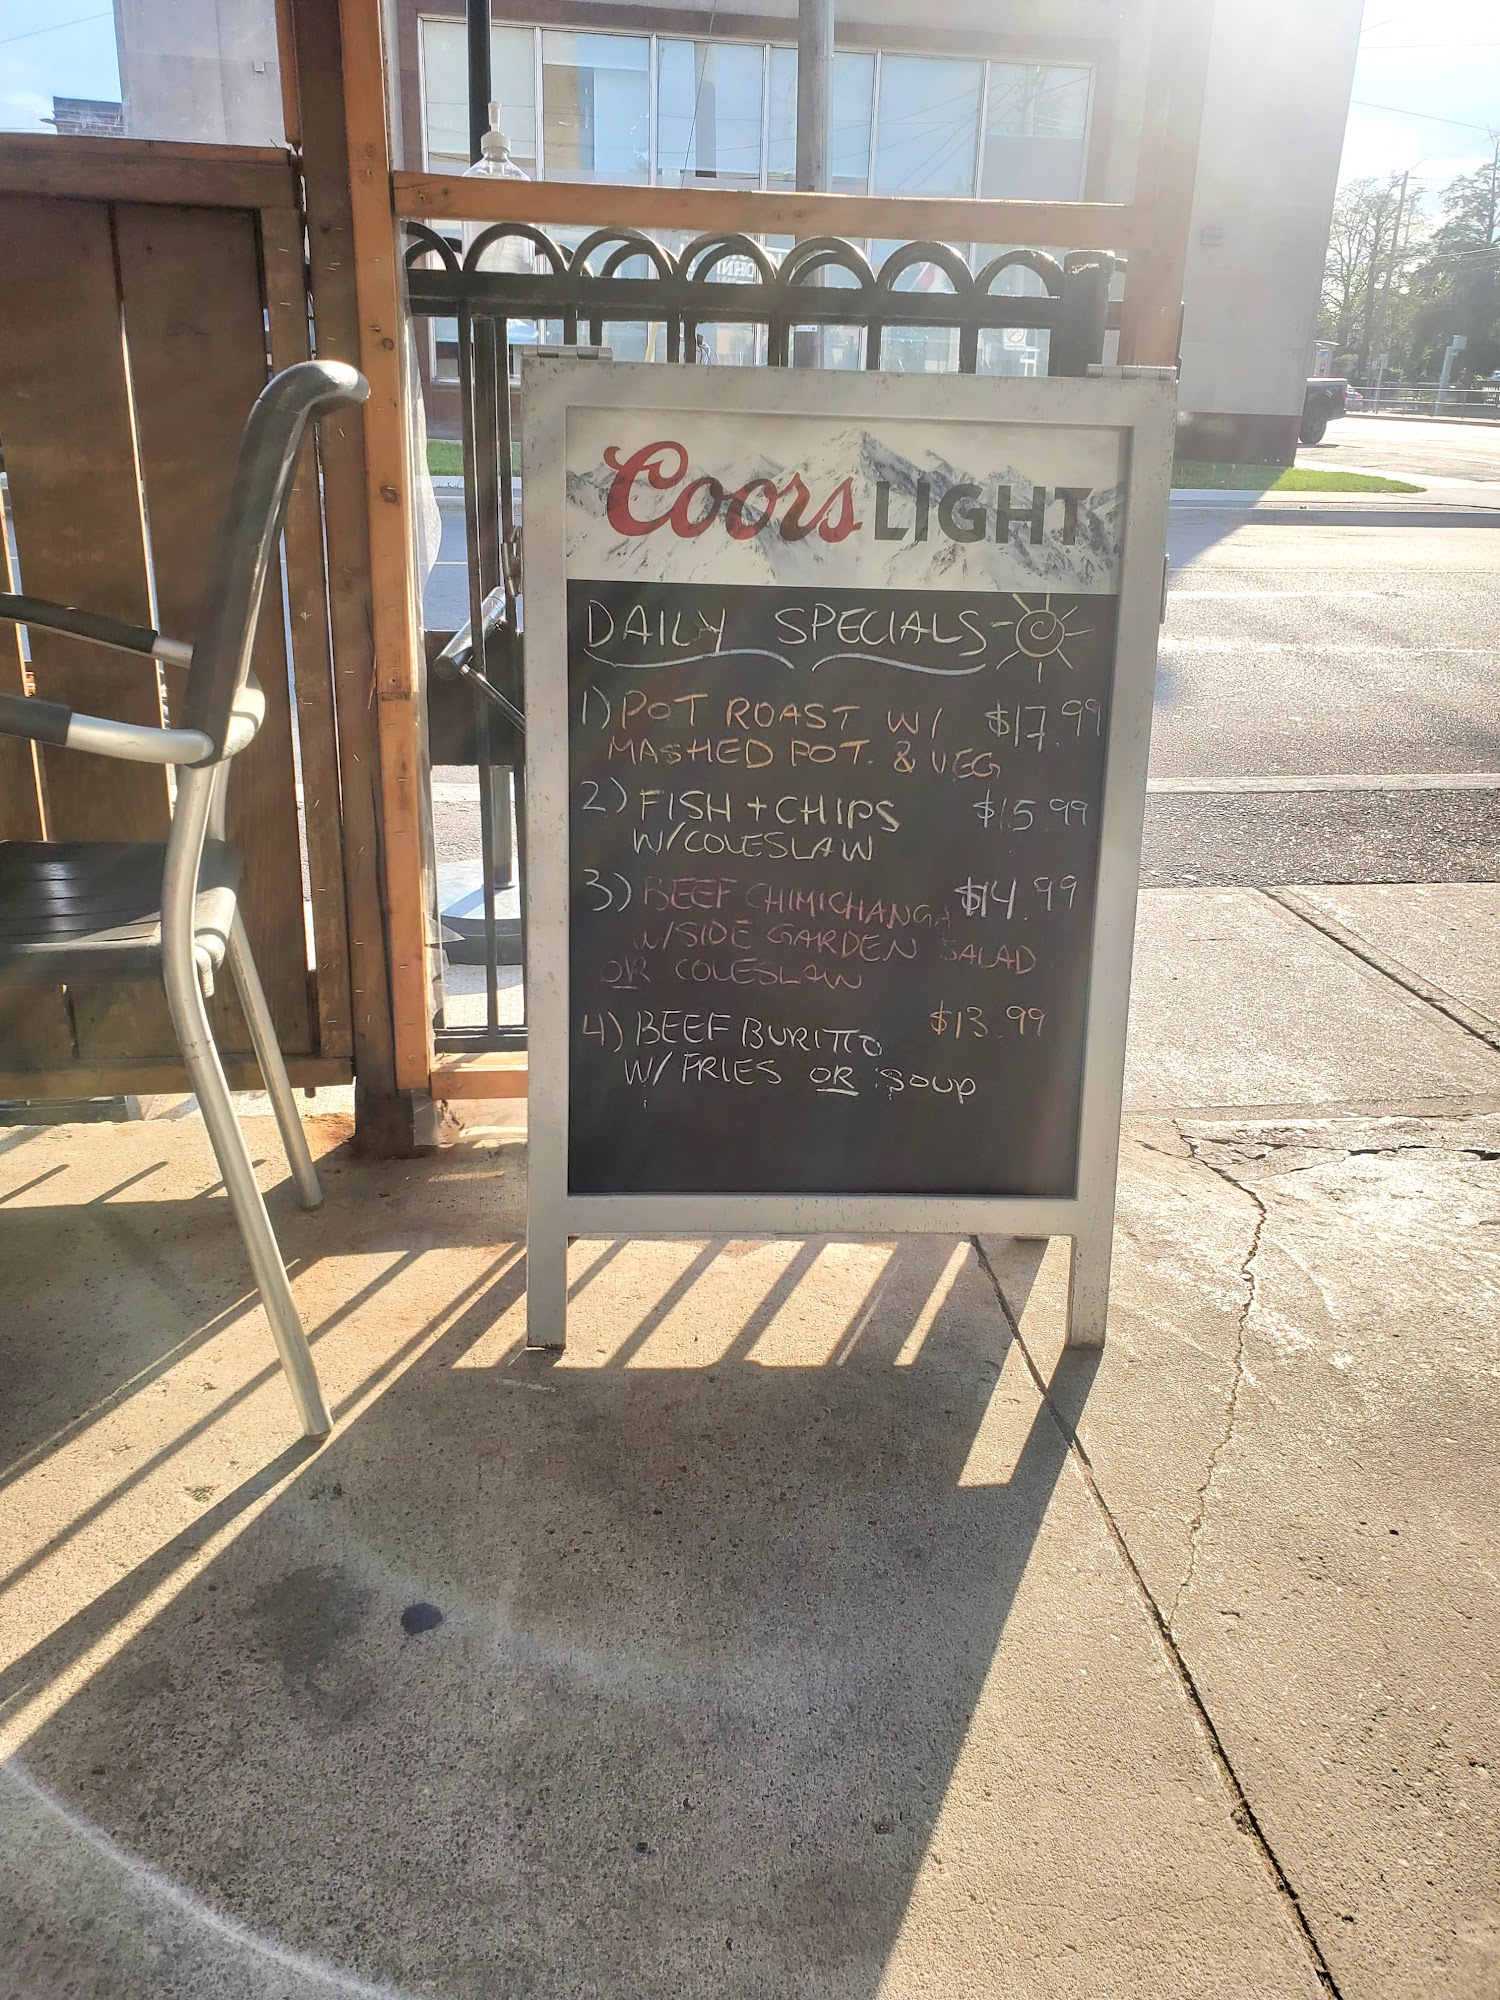 Coors LIGHT
DAILY SPECIALS
1) POT ROAST W/ $17.99
MASHED POT. & VEG
2) FISH + CHIPS $15.99
W/COLESLAW
3) BEEF CHIMICHANGA $14.99
W/SIDE GARDEN SALAD
OR COLESLAW
4) BEEF BURITTO $13.99
W/ FRIES OR SOUP